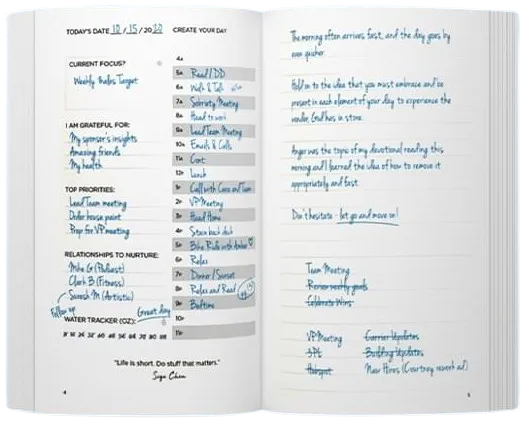 TODAY'S DATE 10 / 15 / 2020 CREATE YOUR DAY
CURRENT FOCUS?
Weekly Sales Target
I AM GRATEFUL FOR:
My sponsor's insights
Amazing friends
My health
TOP PRIORITIES:
Lead Team meeting
Order house paint
Prep for VP meeting
RELATIONSHIPS TO NURTURE:
Mike G (Podcast)
Clark B (Fitness)
Suresh M (Artistic)
Follow up
Great day
WATER TRACKER (OZ):
8 16 24 32 40 48 56 64 72 80 88
4a
5a Read / DD
6a Walk & Talk
7a Sobriety Meeting
8a Head to work
9a Lead Team Meeting
10a Emails & Calls
11a Cont.
12p Lunch
1p Call with Coco and Team
2p VP Meeting
3p Head Home
4p Stain back deck
5p Bike Ride with Amber
6p Relax
7p Dinner / Sunset
8p Relax and Read
9p Bedtime
10p
11p
"Life is short. Do stuff that matters."
4
The morning often arrives fast, and the day goes by
even quicker.
Hold on to the idea that you must embrace and be
present in each element of your day to experience the
wonder God has in store.
Anger was the topic of my devotional reading this
morning and I learned the idea of how to remove it
appropriately and fast.
Don't hesitate - let go and move on!
Team Meeting
Review weekly goals
Celebrate Wins
VP Meeting Carrier Updates
3PL Building Updates
Hubspot New Hires (Courtney rework ad)
5